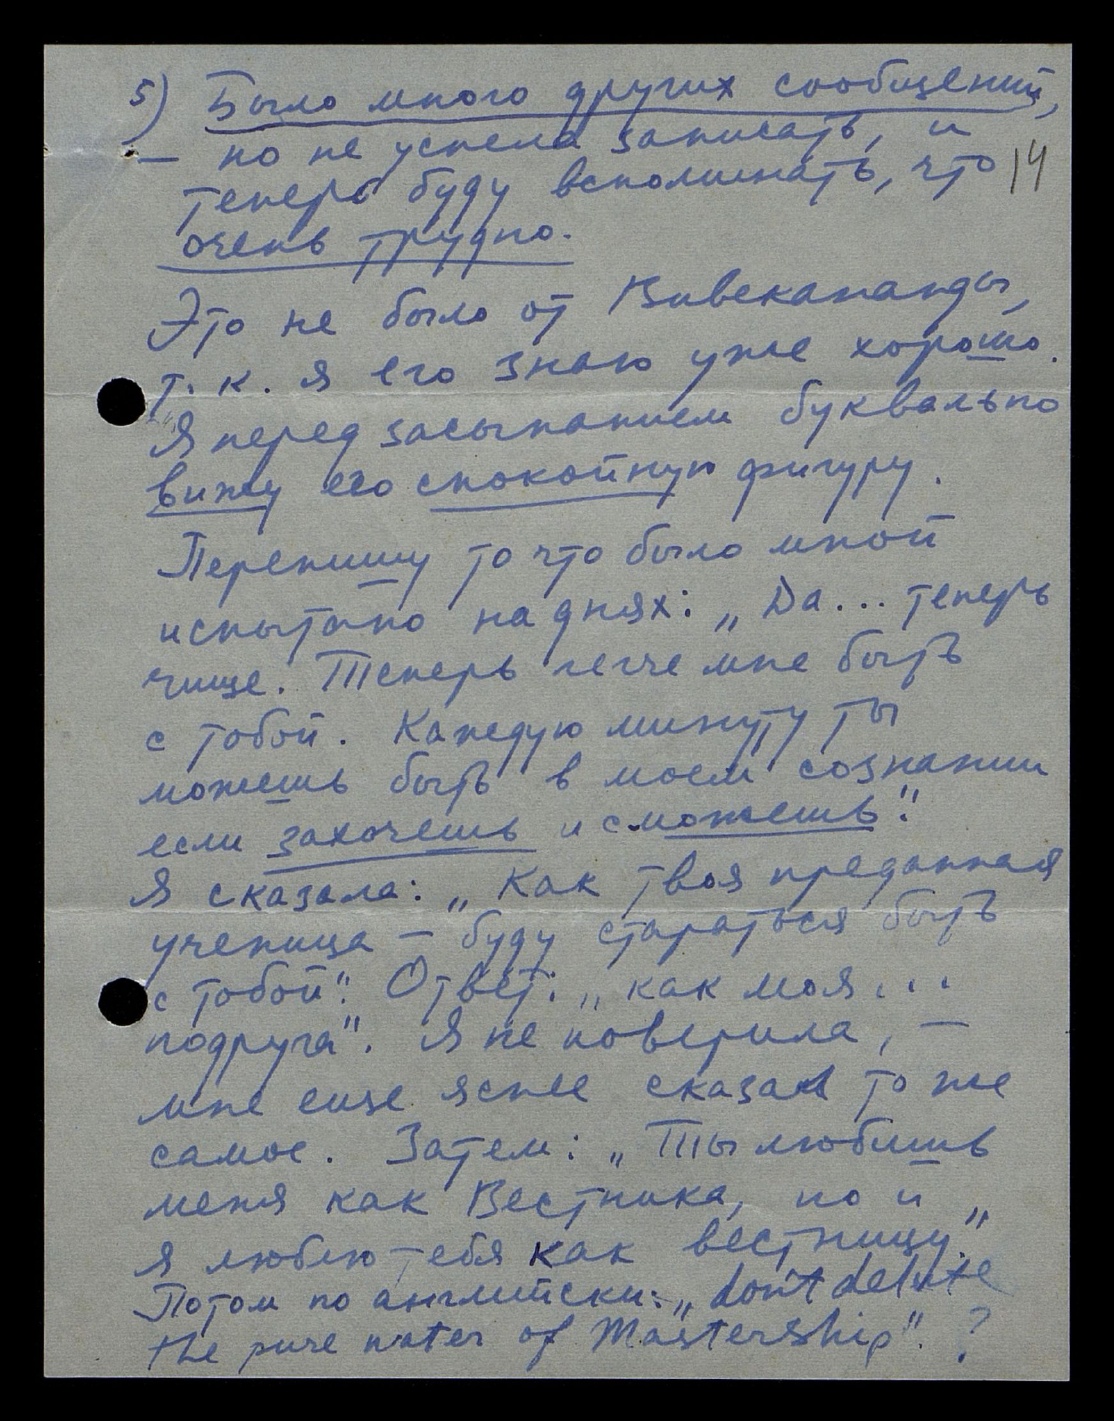 5) Было много других сообщений,
— но не успела записать, и
теперь буду вспоминать, что
14
очень трудно.
Это не было от Вивекананды,
т. к. я его знаю уже хорошо.
Я перед засыпанием буквально
вижу его спокойную фигуру.
Перепишу то что было мной
испытано на днях: „Да... теперь
чище. Теперь легче мне быть
с тобой. Каждую минуту ты
можешь быть в моем сознании
если захочешь и сможешь".
Я сказала: „Как твоя преданная
ученица — буду стараться быть
с тобой". Ответ: „как моя...
подруга". Я не поверила, —
мне еще яснее сказал то же
самое. Затем: „Ты любишь
меня как Вестника, но и
я люблю тебя как вестницу".
Потом по английски: „don't delute
the pure water of Mastership". ?